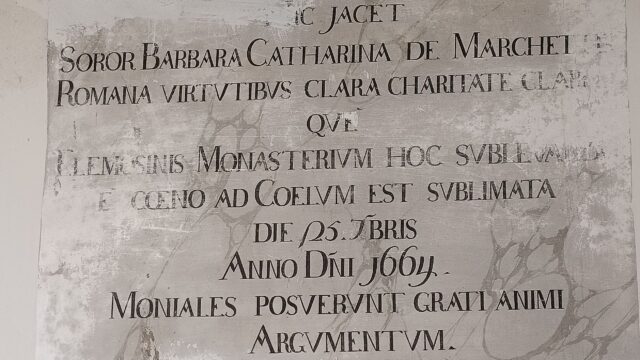 IC JACET
SOROR BARBARA CATHARINA DE MARCHET
ROMANA VIRTVTIBVS CLARA CHARITATE CLAR
QVE
ELEMOSINIS MONASTERIVM HOC SVBLEVA
E CŒNO AD COELVM EST SVBLIMATA
DIE 25. 7B̃RIS
ANNO DÑI 1664.
MONIALES POSVERVNT GRATI ANIMI
ARGVMENTVM.